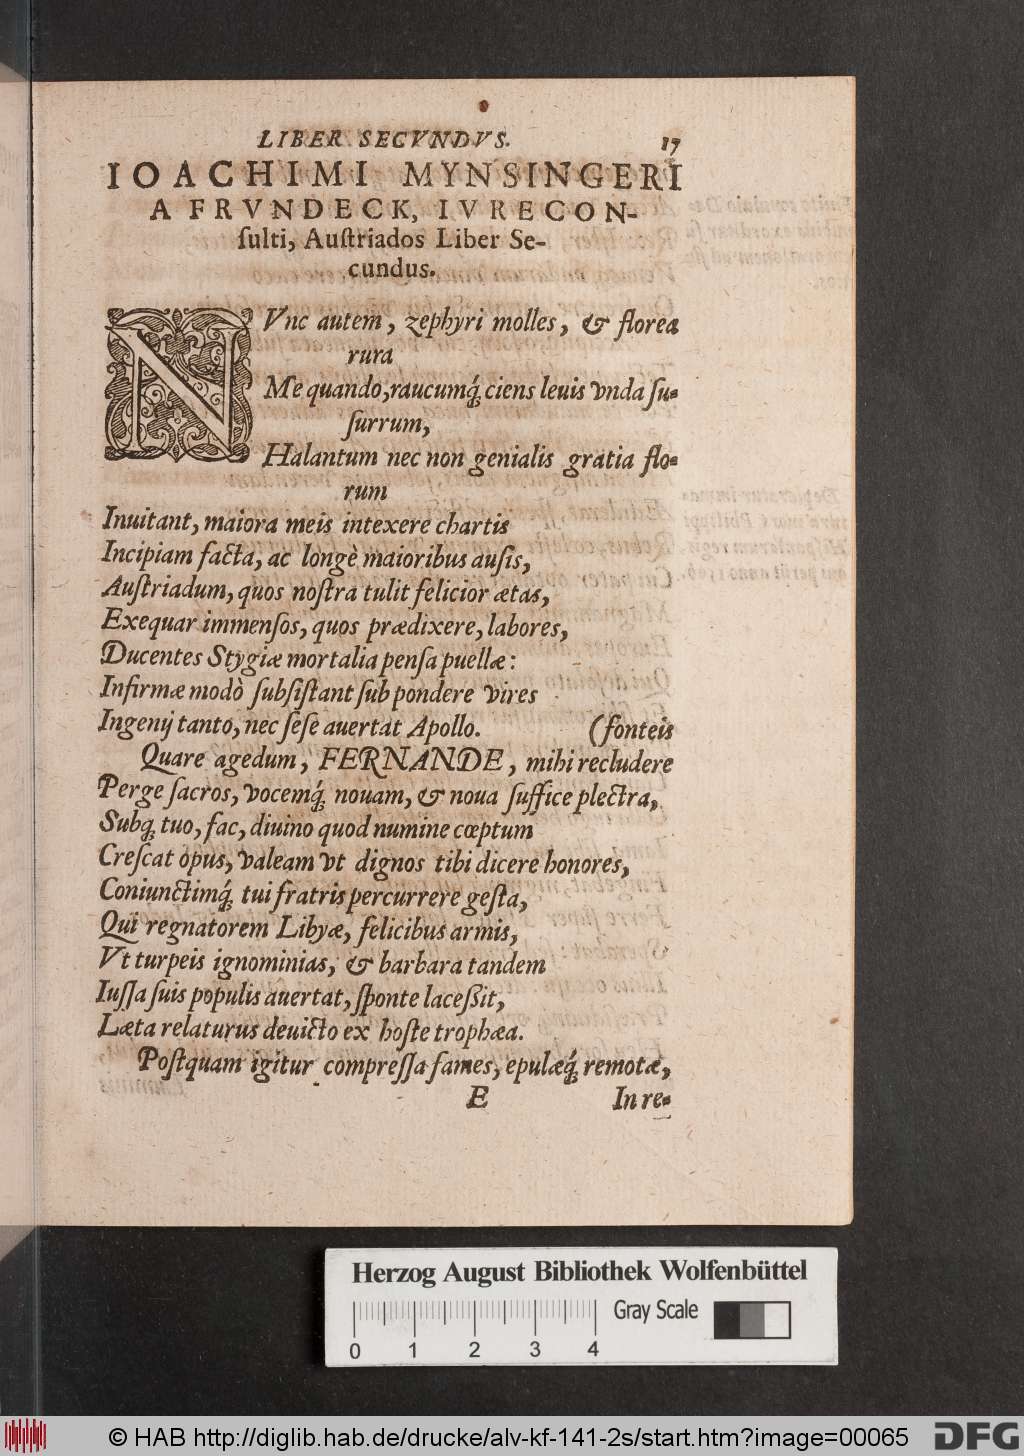 LIBER SECVNDVS. 17
IOACHIMI MYNSINGERI
A FRVNDECK, IVRECON-
ſulti, Auſtriados Liber Se-
cundus.
NVnc autem, zephyri molles, & florea
rura
Me quando, raucumq́; ciens leuis vnda ſu-
ſurrum,
Halantum nec non genialis gratia flo-
rum
Inuitant, maiora meis intexere chartis
Incipiam facta, ac longè maioribus auſis,
Auſtriadum, quos noſtra tulit felicior ætas,
Exequar immenſos, quos prædixere, labores,
Ducentes Stygiæ mortalia penſa puellæ:
Infirmæ modò ſubſiſtant ſub pondere vires
Ingenij tanto, nec ſeſe auertat Apollo. (fonteis
Quare agedum, FERNANDE, mihi recludere
Perge ſacros, vocemq́; nouam, & noua ſuffice plectra,
Subq; tuo, fac, diuino quod numine cœptum
Creſcat opus, valeam vt dignos tibi dicere honores,
Coniunctimq́; tui fratris percurrere geſta,
Qui regnatorem Libyæ, felicibus armis,
Vt turpeis ignominias, & barbara tandem
Iuſſa ſuis populis auertat, ſponte laceßit,
Læta relaturus deuicto ex hoſte trophæa.
Poſtquam igitur compreſſa fames, epulæq́; remotæ,
E In re-
Herzog August Bibliothek Wolfenbüttel
Gray Scale
0 1 2 3 4
© HAB http://diglib.hab.de/drucke/alv-kf-141-2s/start.htm?image=00065
DFG